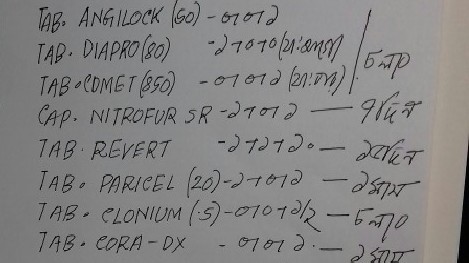 TAB. ANGILOCK (50) - ০+০+১
TAB. DIAPRO (80) - ১+০+০ চলবে
TAB. COMET (850) - ০+০+১
CAP. NITROFUR SR - ১+০+১ — ৭ দিন
TAB. REVERT - ১+১+১ —
TAB. PARICEL (20) - ১+০+১ — ২ মাস
TAB. CLONIUM (.5) - ০+০+১/২ — চলবে
TAB. CORA-DX - ০+০+১ — ২ মাস